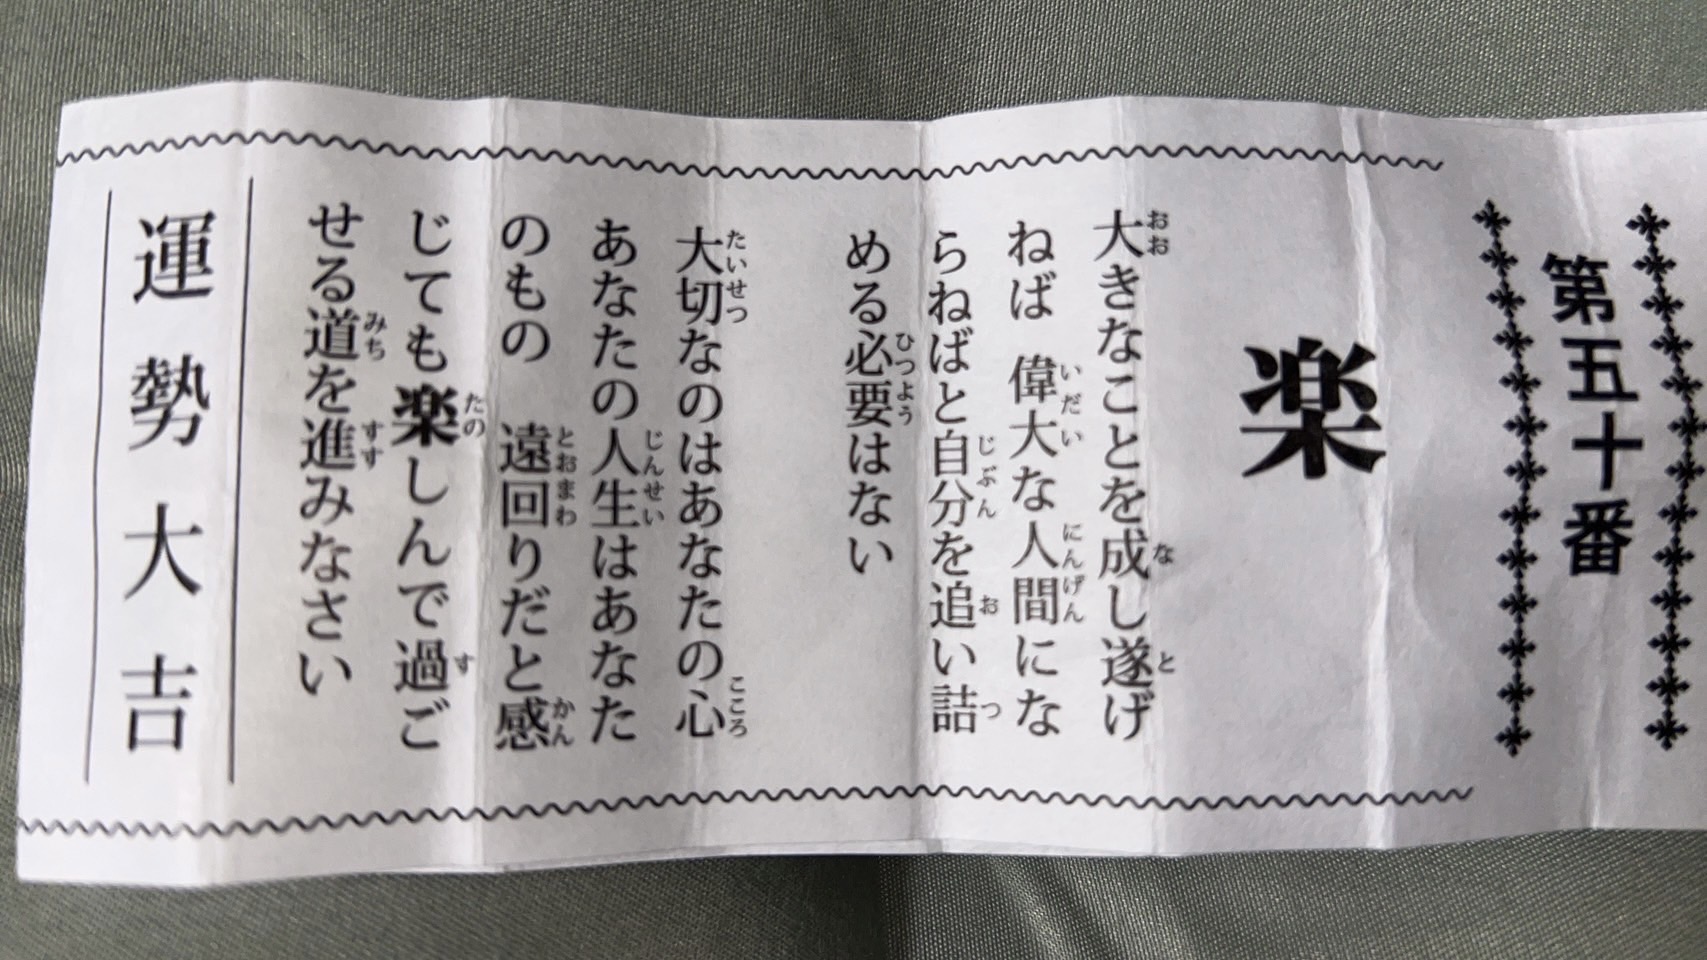 第五十番
楽
大きなことを成し遂げ
ねば 偉大な人間にな
らねばと自分を追い詰
める必要はない
大切なのはあなたの心
あなたの人生はあなた
のもの 遠回りだと感
じても楽しんで過ご
せる道を進みなさい
運勢大吉